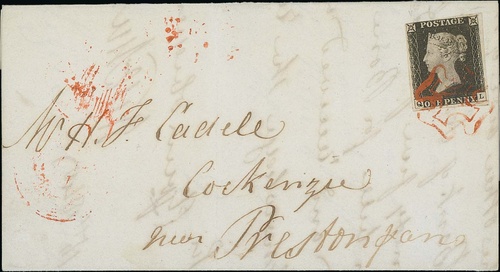 POSTAGE
ONE PENNY
G L
Mr H. F. Cadell
Cockenzie
near Prestonpans